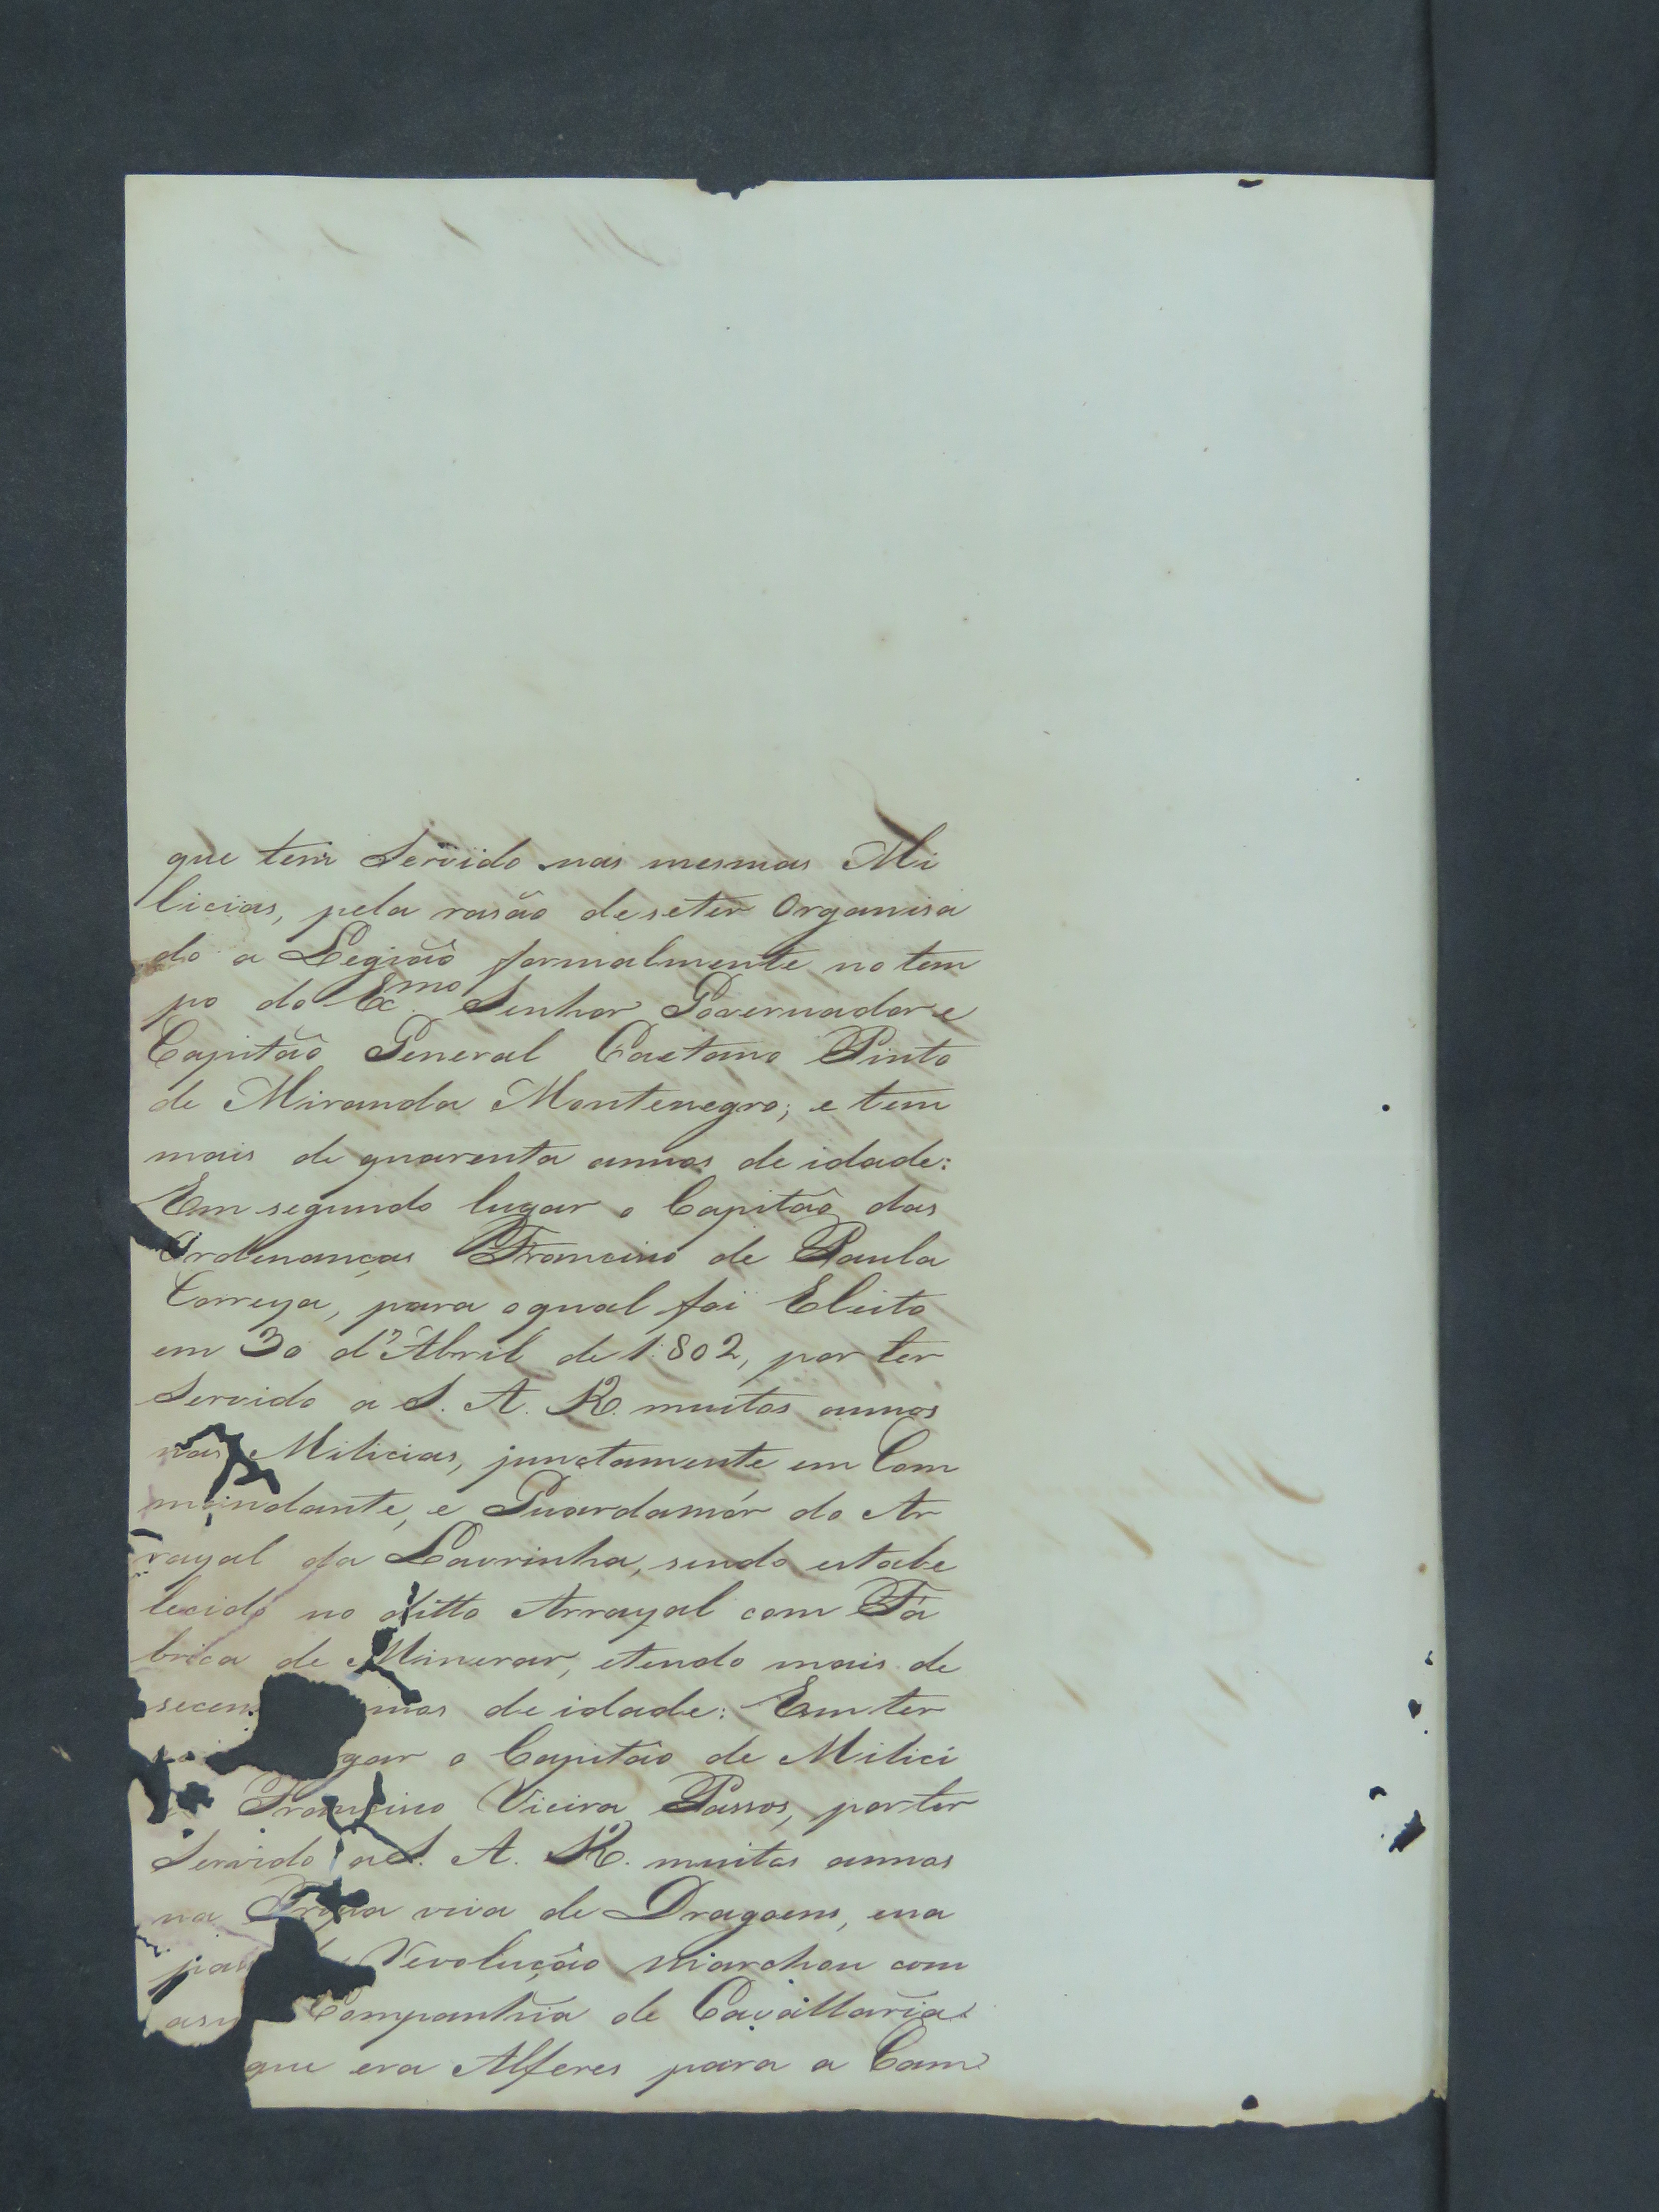 que tem Servido nas mesmas Mi
licias, pela rasão deseter Organisa
do a Legião formalmente no tem
po do Ex.mo Senhor Governador e
Capitão General Caetano Pinto
de Miranda Montenegro; e tem
mais de quarenta annos de idade:
Em segundo lugar o Capitão das
Ordenanças Francisco de Paula
Correya, para oqual foi Eleito
em 30 d'Abril de 1:802, por ter
Servido a S. A. R. muitos annos
nas Milicias, junctamente em Com
mandante, e Guardamór do Ar
rayal da Lavrinha, sendo estabe
lecido no ditto Arrayal com Fá
brica de Minerar, etendo mais de
secen nos de idade: Em ter
gar o Capitão de Milici
Francisco Vieira Passos, por ter
Servido a S. A. R. muitos annos
na Praça viva de Dragoens, ena
pas Revolução marchou com
asu Companhia de Cavallaria
que era Alferes para a Cam